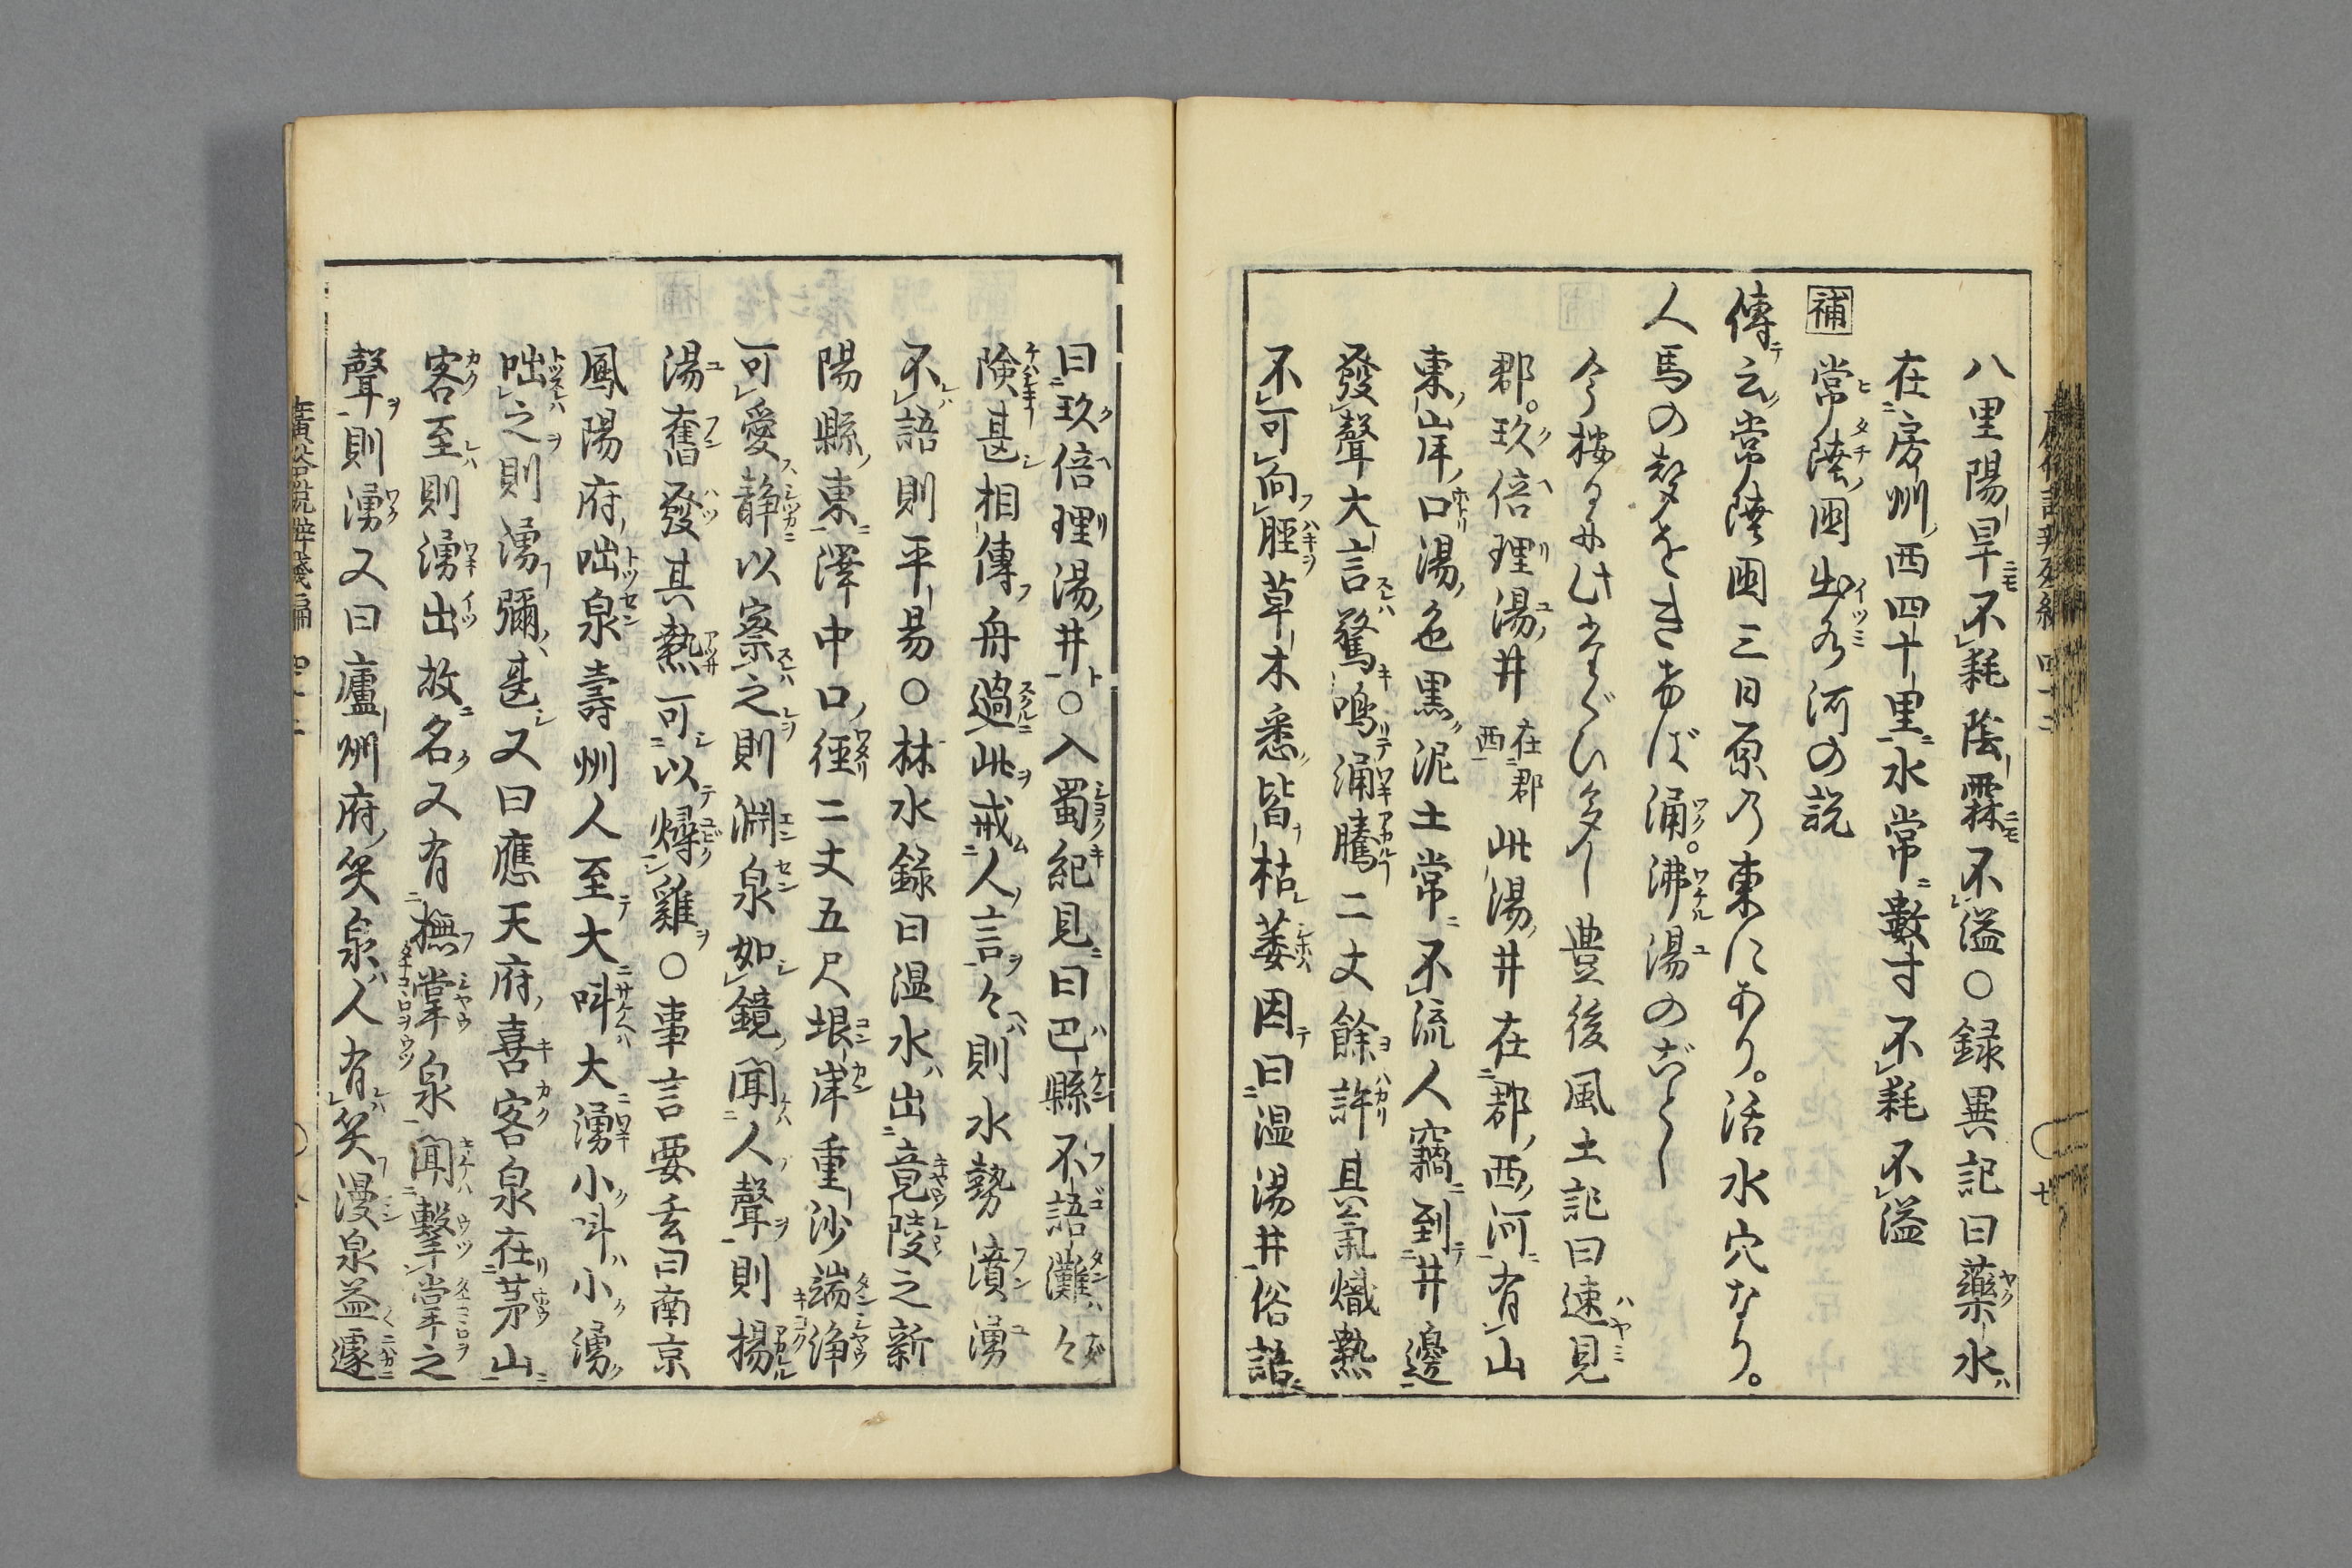 八里陽旱不耗陰霖不溢○録異記曰藥水
在房州西四十里水常數寸不耗不溢
補 常陸国出水河の説
傳云常陸国三日原乃東にあり。活水穴なり。
人馬の聲をきけば涌。沸湯のごとし
今按るに此たぐひ多し豊後風土記曰速見
郡。玖倍理湯井 在郡西 此湯井在郡西河有山
東岸口湯色黒泥土常不流人竊到井邊
發聲大言驚鳴涌騰二丈餘許其氣熾熱
不可向脛草木悉皆枯萎因曰温湯井俗語
曰玖倍理湯井○入蜀紀見曰巴縣不語灘々
険甚相傳舟過此戒人言々則水勢濆湧
不語則平易○林水録曰温水出竟陵之新
陽縣東澤中口徑二丈五尺垠岸重沙端浄
可愛静以察之則淵泉如鏡聞人聲則揚
湯奮發其熱可以燖雞○事言要玄曰南京
鳳陽府咄泉壽州人至大呌大湧小呌小湧
咄之則湧彌甚又曰應天府喜客泉在茅山
客至則湧出故名又有撫掌泉聞擊掌之
聲則湧又曰廬州府笑泉人有笑漫泉益遽